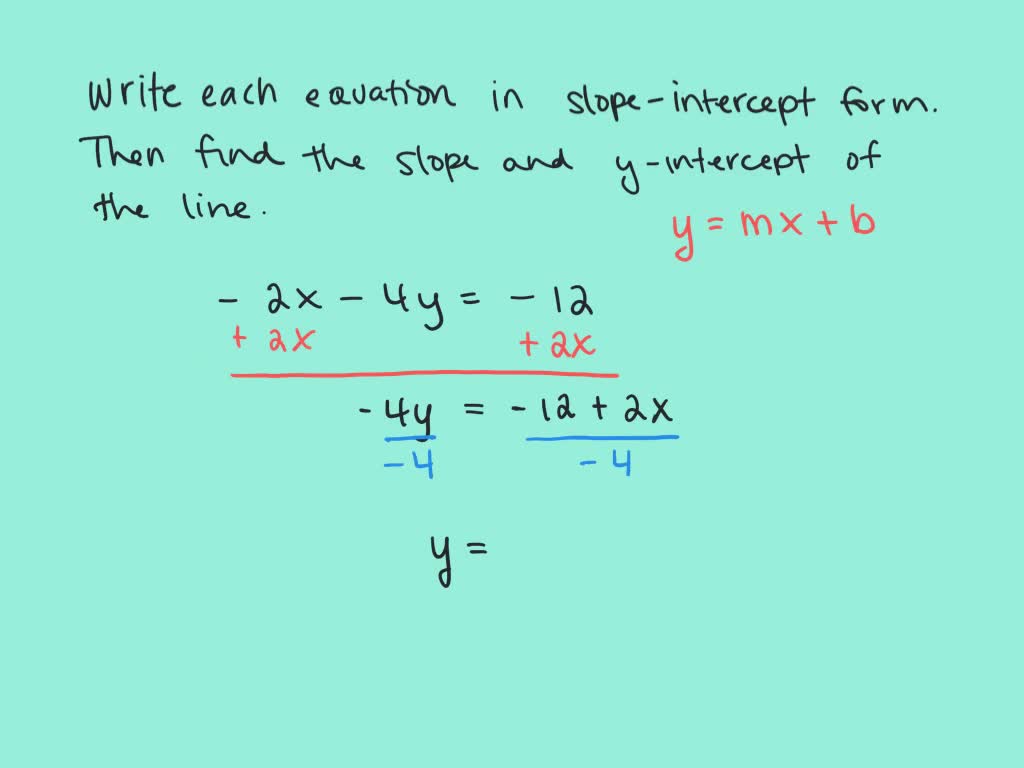 Write each equation in slope-intercept form.
Then find the slope and y-intercept of
the line.
y = mx + b
- 2x - 4y = - 12
+ 2x + 2x
- 4y = - 12 + 2x
- 4 - 4
y =